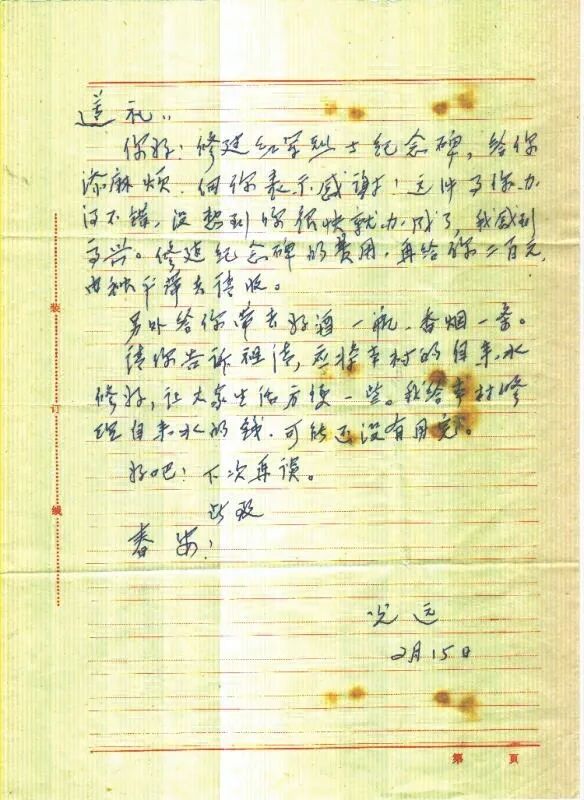 道礼:
你好!修建红军烈士纪念碑,给你
添麻烦,向你表示感谢!这件事你办
得不错,没想到你很快就办成了,我感到
高兴。修建纪念碑的费用,再给你二百元,
由秋平带去请收。
另外给你带去好酒一瓶、香烟一条。
请你告诉祖清,应将本村的自来水
修好,让大家生活方便一些。我给本村修
理自来水的钱,可能还没有用完。
好吧!下次再谈。
此致
春安!
光远
2月15日
装
订
线
第 页